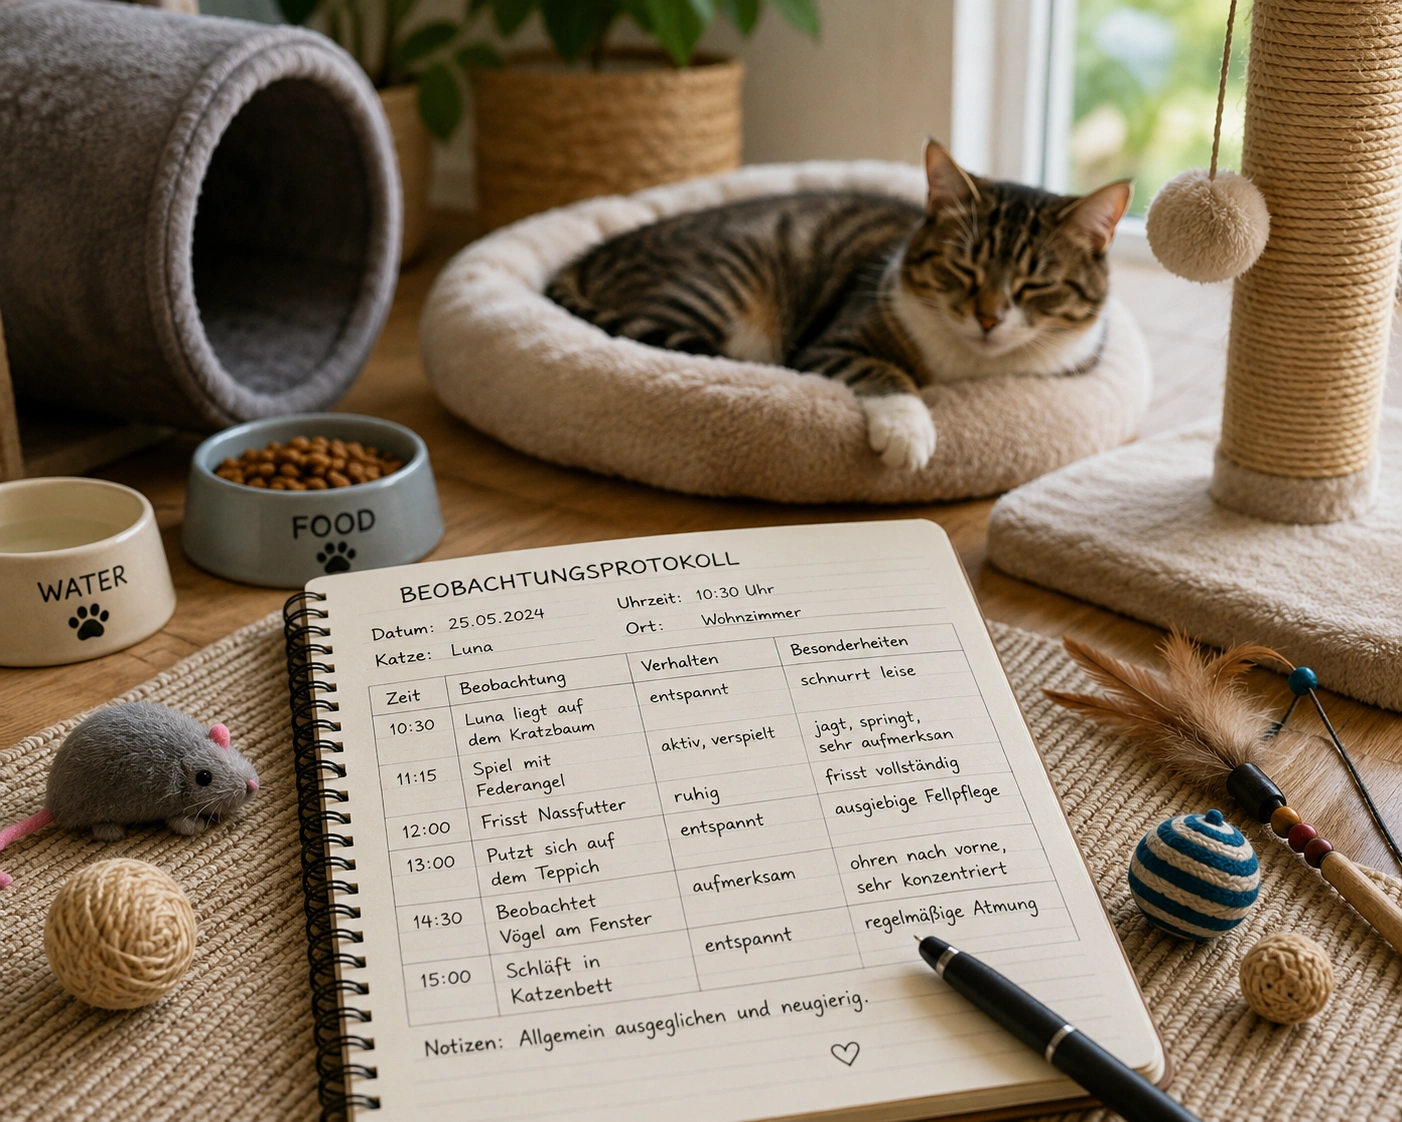 FOOD
WATER
BEOBACHTUNGSPROTOKOLL
Datum: 25.05.2024 Uhrzeit: 10:30 Uhr
Katze: Luna Ort: Wohnzimmer
Zeit Beobachtung Verhalten Besonderheiten
10:30 Luna liegt auf entspannt schnurrt leise
dem Kratzbaum
11:15 Spiel mit aktiv, verspielt jagt, springt,
Federangel sehr aufmerksan
12:00 Frisst Nassfutter ruhig frisst vollständig
13:00 Putzt sich auf entspannt ausgiebige Fellpflege
dem Teppich
14:30 Beobachtet aufmerksam ohren nach vorne,
Vögel am Fenster sehr konzentriert
15:00 Schläft in entspannt regelmäßige Atmung
Katzenbett
Notizen: Allgemein ausgeglichen und neugierig.